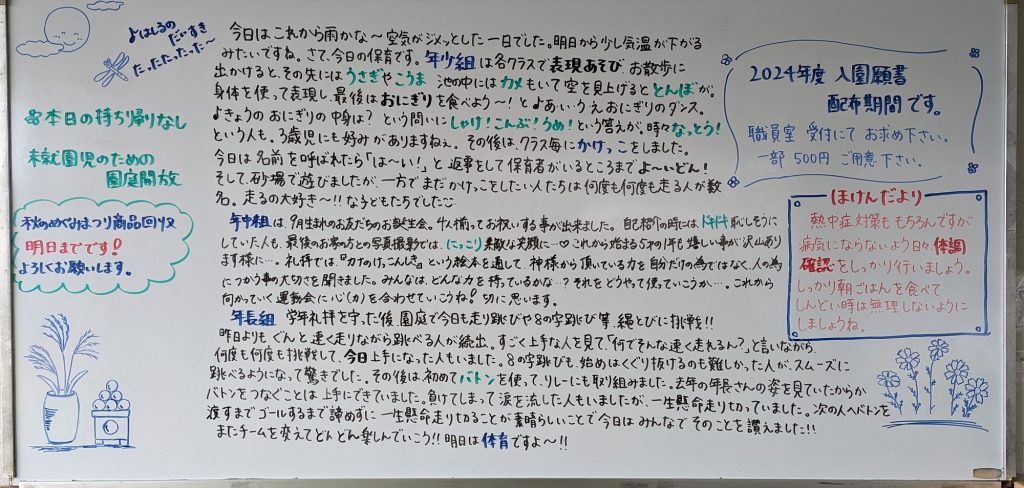 ♪はしるの
だいすき
たったったった〜
本日の持ち帰りなし
未就園児のための
園庭開放
秋のめぐみまつり商品回収
明日までです!
よろしくお願いします。
今日はこれから雨かな〜空気がジメッとした一日でした。明日から少し気温が下がる
みたいですね。さて、今日の保育です。年少組は各クラスで表現あそび。お散歩に
出かけると、その先にはうさぎやこうま 池の中にはカメもいて空を見上げるととんぼが。
身体を使って表現し、最後はおにぎりを食べよう〜!と♪あ・い・う・え おにぎりのダンス。
♪きょうの おにぎりの中身は?という問いにしゃけ!こんぶ!うめ!という答えが。時々なっとう!
という人も。3歳児にも好みがありますねぇ。その後は、クラス毎にかけっこをしました。
今日は名前を呼ばれたら「は〜い!」と返事をして保育者がいるところまでよ〜いどん!
そして、砂場で遊びましたが、一方でまだかけっこをしたい人たちは何度も何度も走る人が数
名。走るの大好き〜!!な子どもたちでした
年中組は、9月生まれのお友だちのお誕生会。4人揃ってお祝いする事が出来ました。自己紹介の時にはドキドキ恥しそうに
していた人も、最後のお家の方との写真撮影では、にっこり素敵な笑顔に…♡これから始まる5才の1年も嬉しい事が沢山あり
ます様に…。礼拝では、『力のけっこんしき』という絵本を通して、神様から頂いている力を自分だけの為ではなく、人の為
につかう事の大切さを聞きました。みんなは、どんな力を持っているかな…?それをどうやって使っていこうか…。これから
向かっていく運動会に心(力)を合わせていこうね!切に思います。
年長組 学年礼拝を守った後、園庭で今日も走り跳びや8の字跳び等、縄とびに挑戦!!
昨日よりも ぐんと速く走りながら跳べる人が続出。すごく上手な人を見て「何でそんな速く走れるん?」と言いながら、
何度も何度も挑戦して、今日上手になった人もいました。8の字跳びも、始めはくぐり抜けるのも難しかった人が、スムーズに
跳べるようになって驚きでした。その後は、初めてバトンを使って、リレーにも取り組みました。去年の年長さんの姿を見ていたからか
バトンをつなぐことは上手にできていました。負けてしまって涙を流した人もいましたが、一生懸命走り切っていました。次の人へバトンを
渡すまでゴールするまで諦めずに一生懸命走りきることが素晴らしいことで今日はみんなでそのことを讃えました!!
またチームを変えてどんどん楽しんでいこう!!明日は体育ですよ〜!!
2024年度 入園願書
配布期間です。
職員室 受付にて お求め下さい。
一部 500円 ご用意下さい。
ほけんだより
熱中症対策ももちろんですが
病気にならないよう日々体調
確認をしっかり行いましょう。
しっかり朝ごはんを食べて
しんどい時は無理しないように
しましょうね。